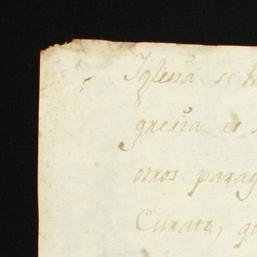 Iglesia se h
gresia es
otros parag
Curato, qu